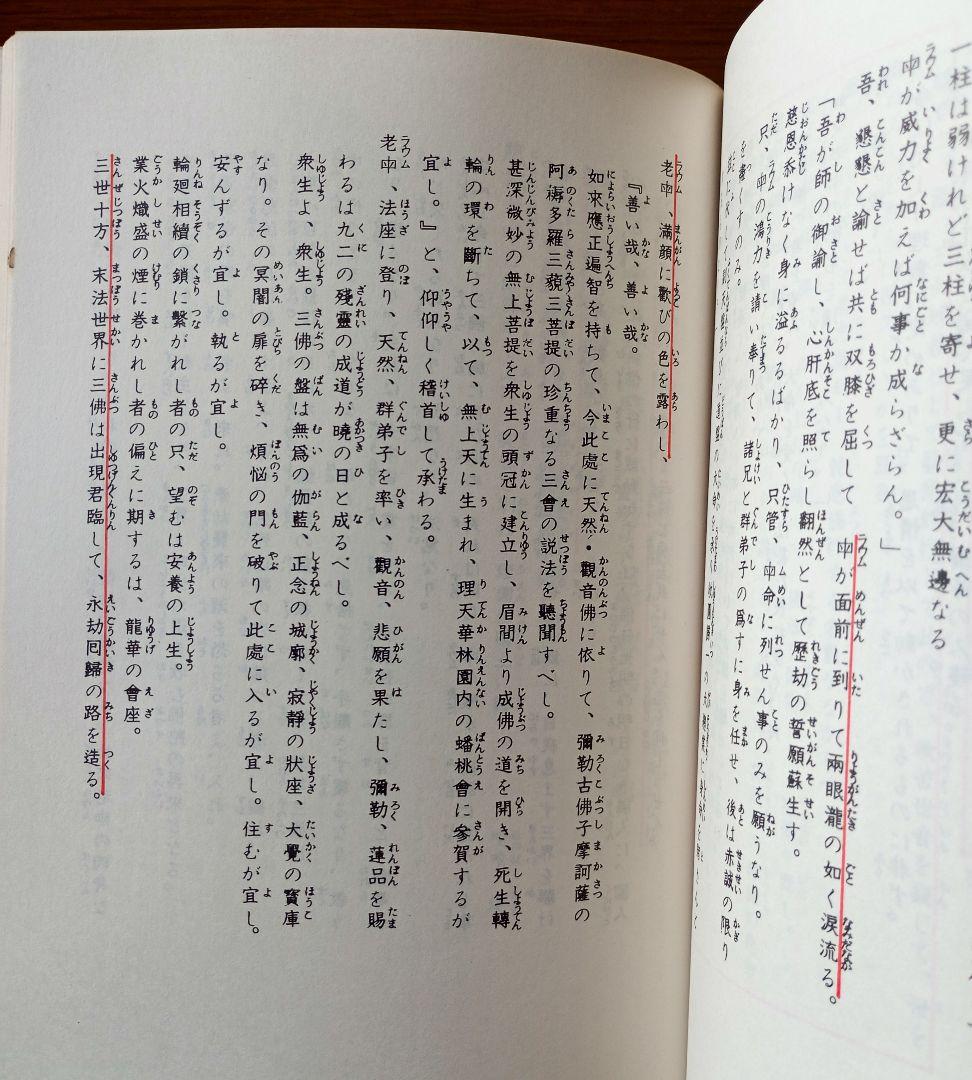 一柱は弱けれど三柱を寄せ、更に宏大無邊なる
中が威力を加えば何事か成らざらん。」
吾、懇懇と諭せば共に双膝を屈して中が面前に到りて兩眼瀧の如く涙流る。
「吾が師の御諭し、心肝底を照らし翻然として歴劫の誓願蘇生す。
慈恩忝けなく身に溢るるばかり、只管、中命に列せん事のみを願うなり。
只、中の鴻力を請い奉りて、諸兄と群弟子の爲すに身を任せ、後は赤誠の限り
を盡すのみ。
老中、滿顔に歡びの色を露わし、
『善い哉、善い哉。
如來應正遍智を持ちて、今此處に天然・觀音佛に依りて、彌勒古佛子摩訶薩の
阿耨多羅三藐三菩提の珍重なる三會の説法を聽聞すべし。
甚深微妙の無上菩提を衆生の頭冠に建立し、眉間より成佛の道を開き、死生轉
輪の環を斷ちて、以て、無上天に生まれ、理天華林園内の蟠桃會に參賀するが
宜し。』と、仰仰しく稽首して承わる。
老中、法座に登り、天然、群弟子を率い、觀音、悲願を果たし、彌勒、蓮品を賜
わるは九二の殘靈の成道が曉の日と成るべし。
衆生よ、衆生。三佛の盤は無爲の伽藍、正念の城廓、寂靜の狀座、大覺の寶庫
なり。その冥闇の扉を碎き、煩悩の門を破りて此處に入るが宜し。住むが宜し。
安んずるが宜し。執るが宜し。
輪廻相續の鎖に繫がれし者の只、望むは安養の上生。
業火熾盛の煙に巻かれし者の偏えに期するは、龍華の會座。
三世十方、末法世界に三佛は出現君臨して、永劫囘歸の路を造る。